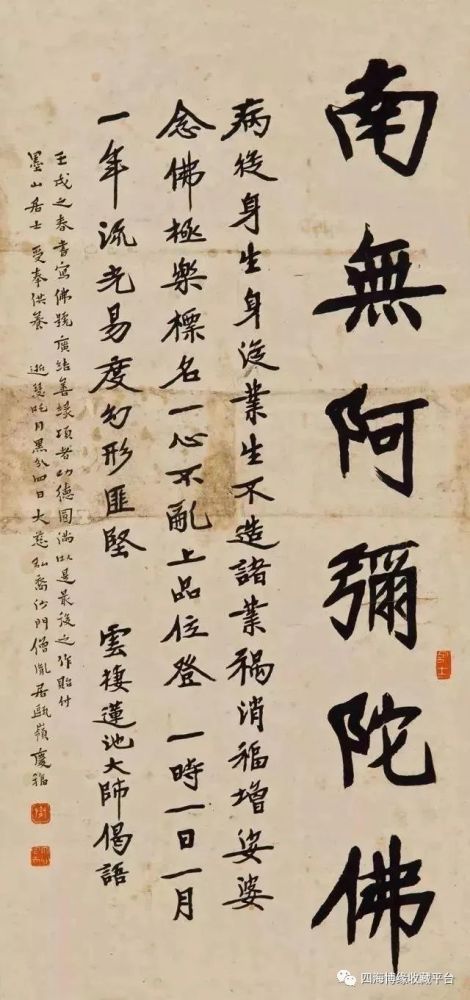 南無阿彌陀佛
病從身生身從業生不造諸業禍消福增娑婆
念佛極樂標名一心不亂上品位登 一時一日一月
一年流光易度幻形匪堅 雲棲蓮池大師偈語
壬戌之春書寫佛號廣結善緣頃者功德圓滿以是最後之作貽付
墨山居士 受奉供養 逝瑟吒月黑分四日大慈弘裔沙門僧胤居甌嶺慶福
四海博缘收藏平台